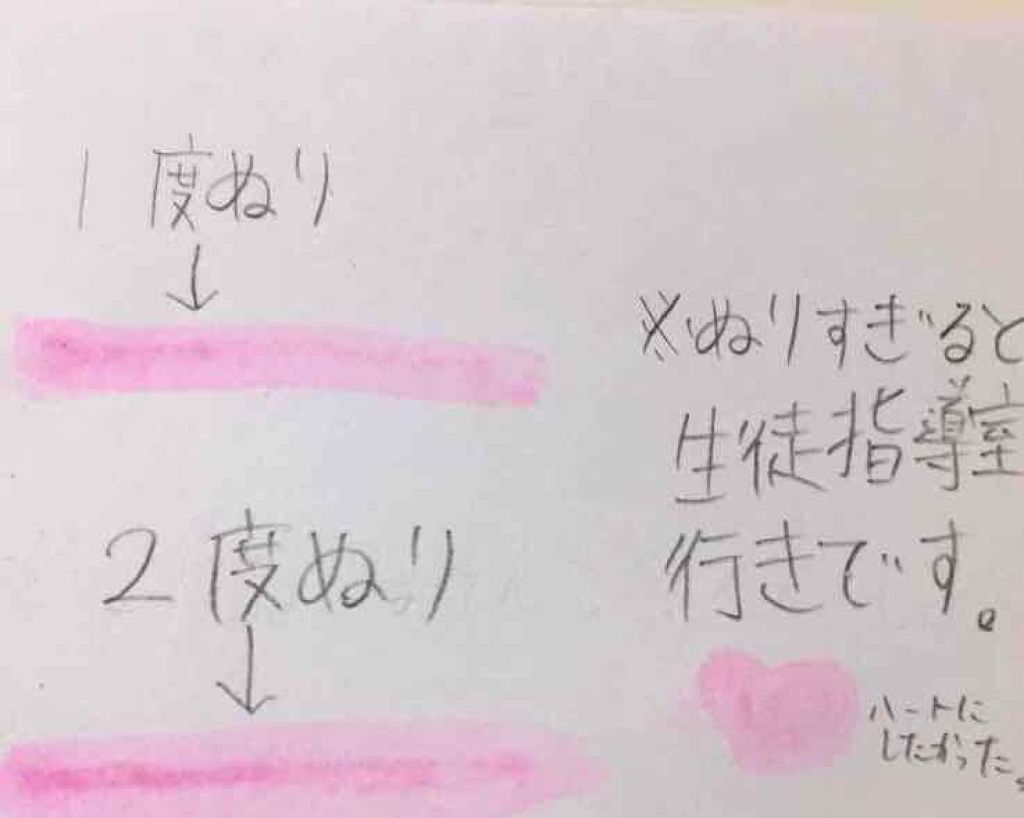 1度ぬり
↓
※ぬりすぎると
生徒指導室
行きです。
2度ぬり
↓
ハートに
したかった。